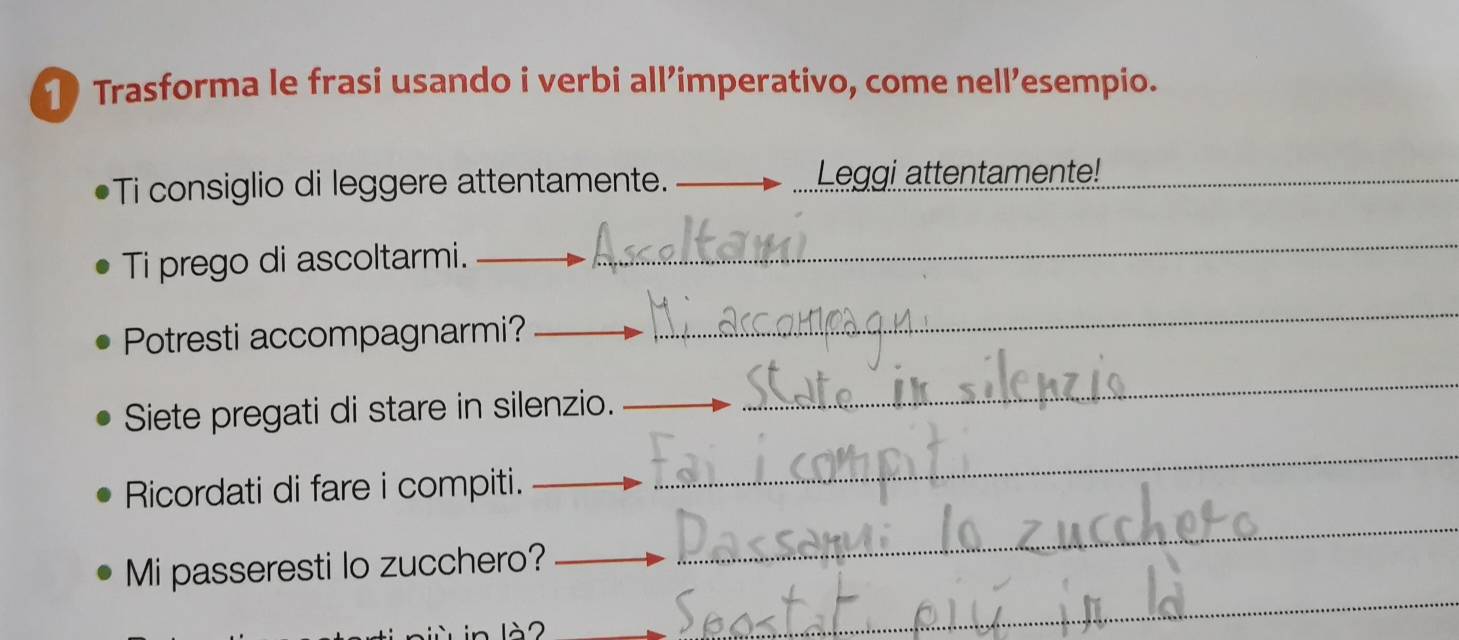 1 Trasforma le frasi usando i verbi all'imperativo, come nell'esempio.
• Ti consiglio di leggere attentamente. → Leggi attentamente!
• Ti prego di ascoltarmi. → Ascoltami
• Potresti accompagnarmi? → Mi accompagni
• Siete pregati di stare in silenzio. → State in silenzio
• Ricordati di fare i compiti. → Fai i compiti
• Mi passeresti lo zucchero? → Passami lo zucchero
più in là? → Spostati più in là